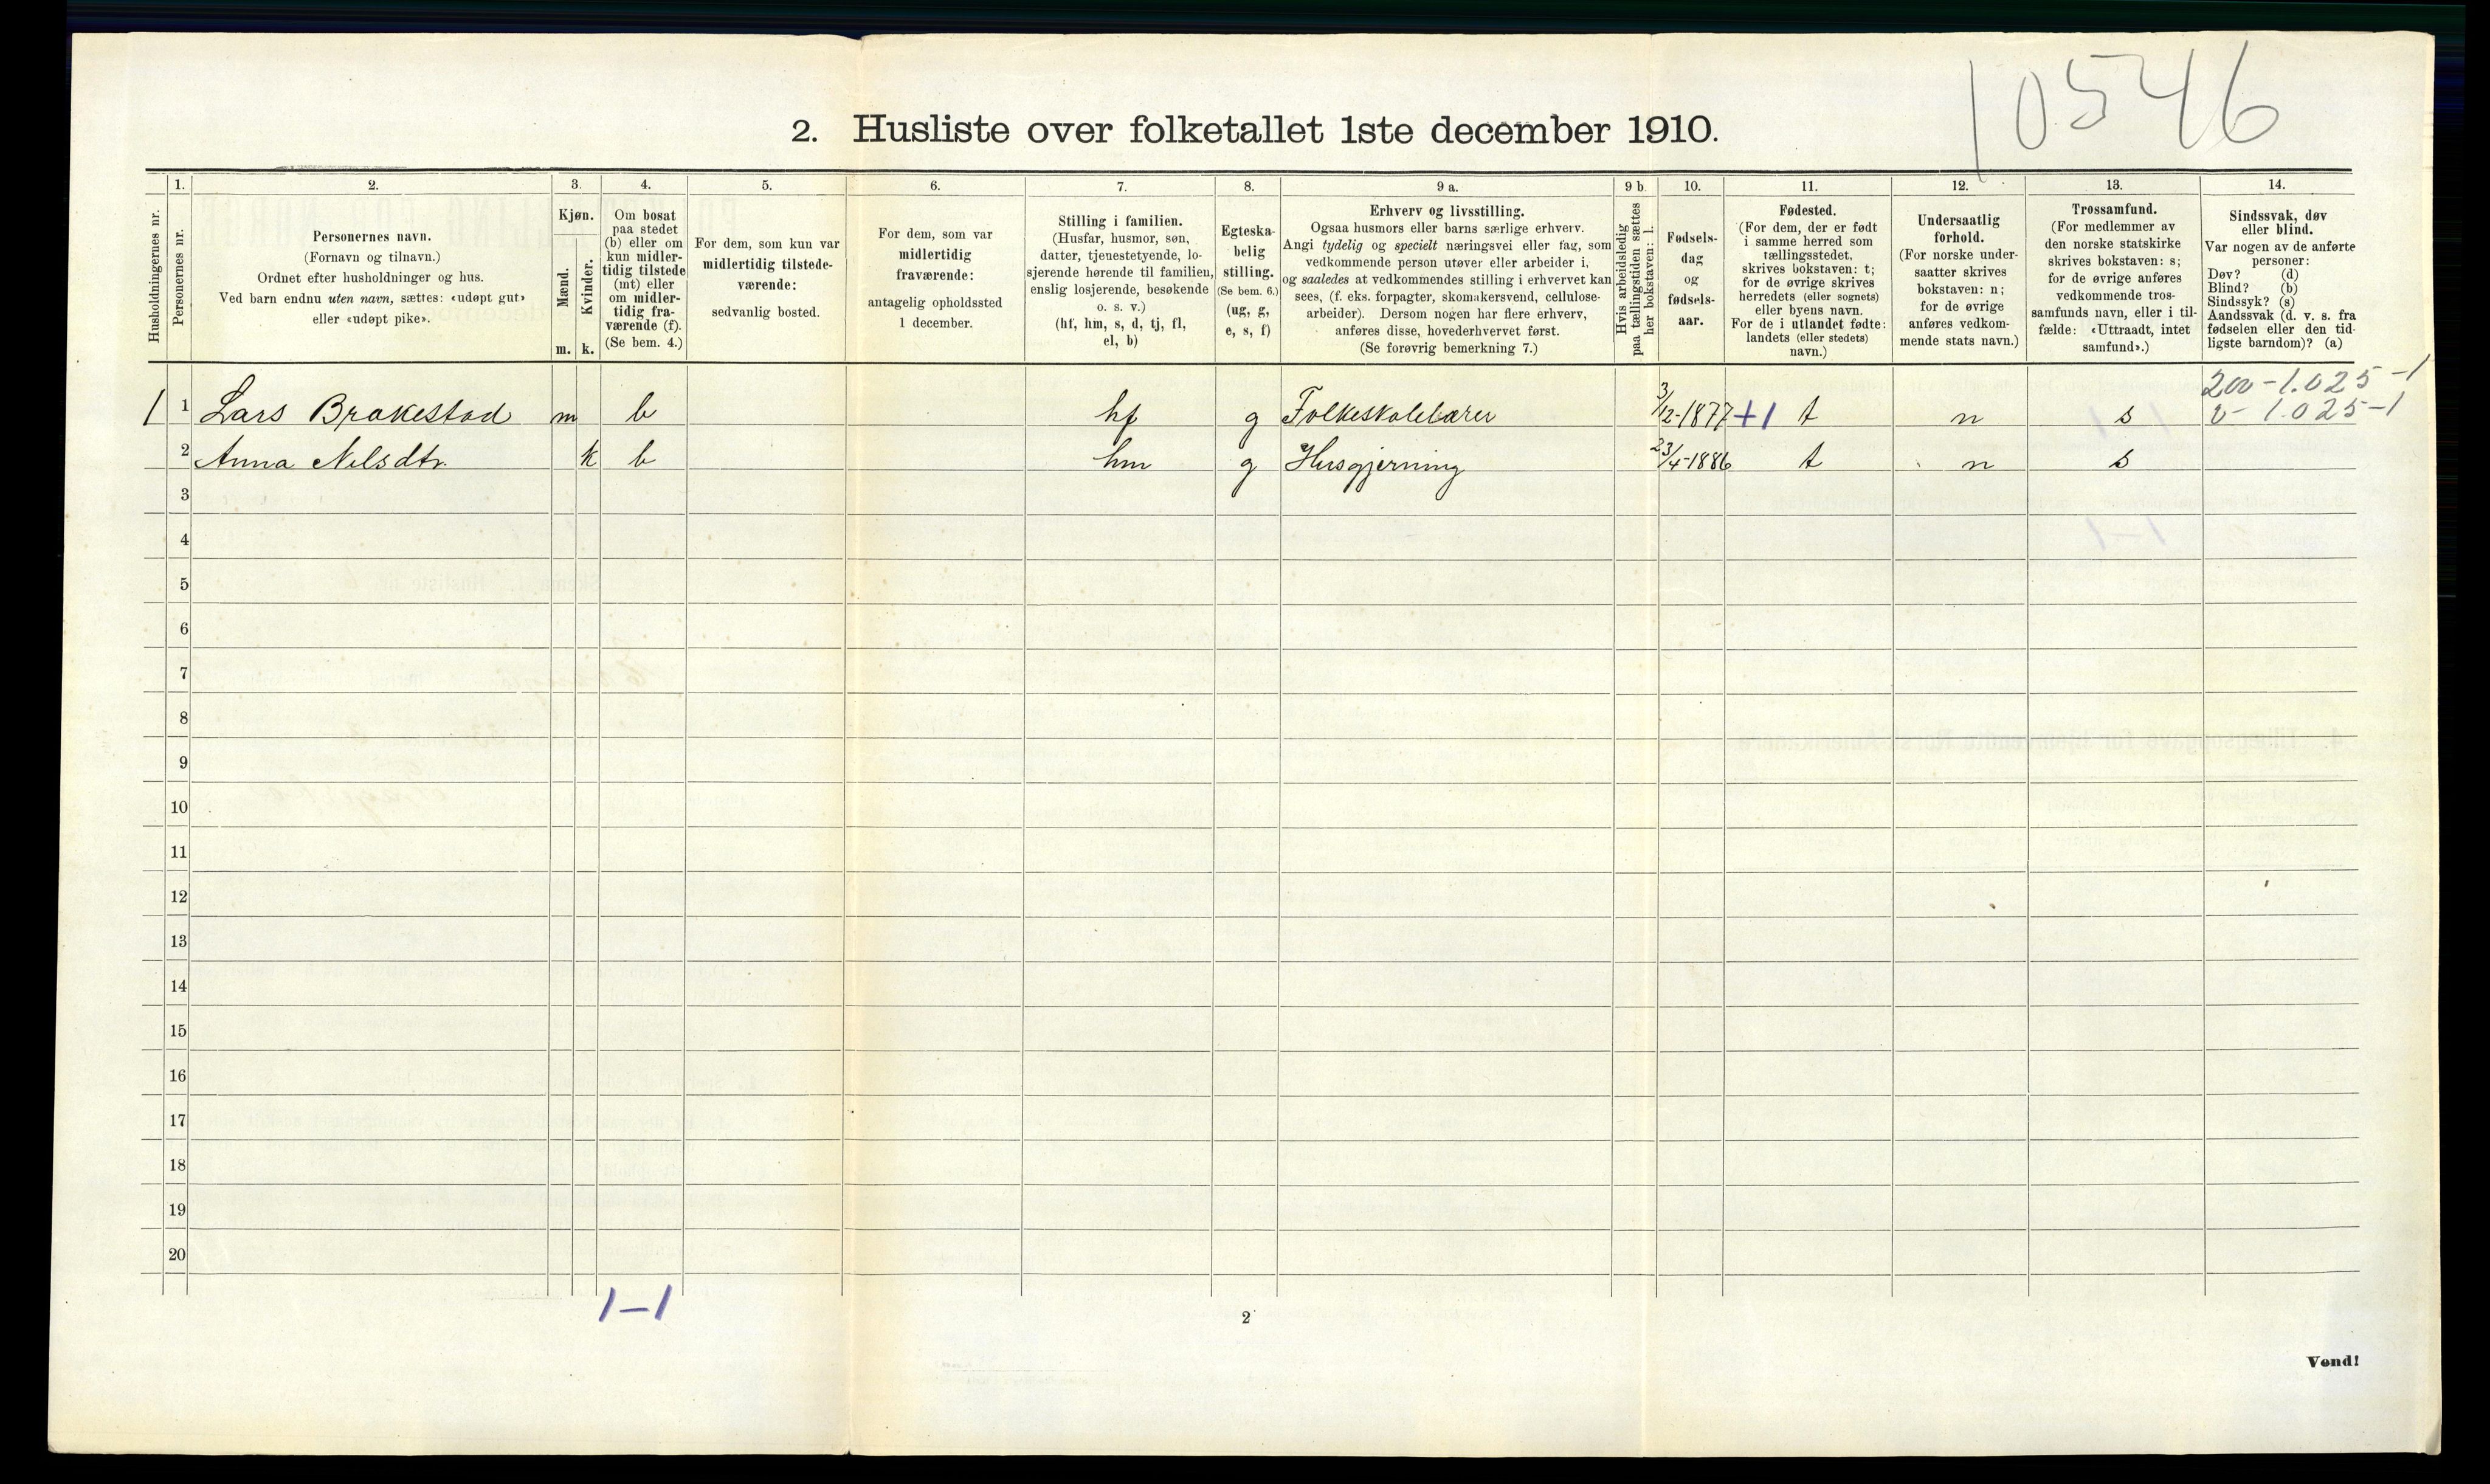 10546
2. Husliste over folketallet 1ste december 1910.
Husholdningernes nr.
1.
Personernes nr.
2.
Personernes navn.
(Fornavn og tilnavn.)
Ordnet efter husholdninger og hus.
Ved barn endnu uten navn, sættes: «udøpt gut»
eller «udøpt pike».
3.
Kjøn.
Mænd.
Kvinder.
m. k.
4.
Om bosat
paa stedet
(b) eller om
kun midler-
tidig tilstede
(mt) eller
om midler-
tidig fra-
værende (f).
(Se bem. 4.)
5.
For dem, som kun var
midlertidig tilstede-
værende:
sedvanlig bosted.
6.
For dem, som var
midlertidig
fraværende:
antagelig opholdssted
1 december.
7.
Stilling i familien.
(Husfar, husmor, søn,
datter, tjenestetyende, lo-
sjerende hørende til familien,
enslig losjerende, besøkende
o. s. v.)
(hf, hm, s, d, tj, fl,
el, b)
8.
Egteska-
belig
stilling.
(Se bem. 6.)
(ug, g,
e, s, f)
9 a.
Erhverv og livsstilling.
Ogsaa husmors eller barns særlige erhverv.
Angi tydelig og specielt næringsvei eller fag, som
vedkommende person utøver eller arbeider i,
og saaledes at vedkommendes stilling i erhvervet kan
sees, (f. eks. forpagter, skomakersvend, cellulose-
arbeider). Dersom nogen har flere erhverv,
anføres disse, hovederhvervet først.
(Se forøvrig bemerkning 7.)
9 b.
Hvis arbeidsledig
paa tællingstiden sættes
her bokstaven: l.
10.
Fødsels-
dag
og
fødsels-
aar.
11.
Fødested.
(For dem, der er født
i samme herred som
tællingsstedet,
skrives bokstaven: t;
for de øvrige skrives
herredets (eller sognets)
eller byens navn.
For de i utlandet fødte:
landets (eller stedets)
navn.)
12.
Undersaatlig
forhold.
(For norske under-
saatter skrives
bokstaven: n;
for de øvrige
anføres vedkom-
mende stats navn.)
13.
Trossamfund.
(For medlemmer av
den norske statskirke
skrives bokstaven: s;
for de øvrige anføres
vedkommende tros-
samfunds navn, eller i til-
fælde: «Uttraadt, intet
samfund».)
14.
Sindssvak, døv
eller blind.
Var nogen av de anførte
personer:
Døv? (d)
Blind? (b)
Sindssyk? (s)
Aandssvak (d. v. s. fra
fødselen eller den tid-
ligste barndom)? (a)
200-1.025-1
1 1 Lars Brakestad m b hf g Folkeskolelærer 3/12-1877 +1 t n s 0-1.025-1
2 Anna Nelsdtr. k b hm g Husgjerning 23/4-1886 t n s
3
4
5
6
7
8
9
10
11
12
13
14
15
16
17
18
19
20
1-1
2
Vend!